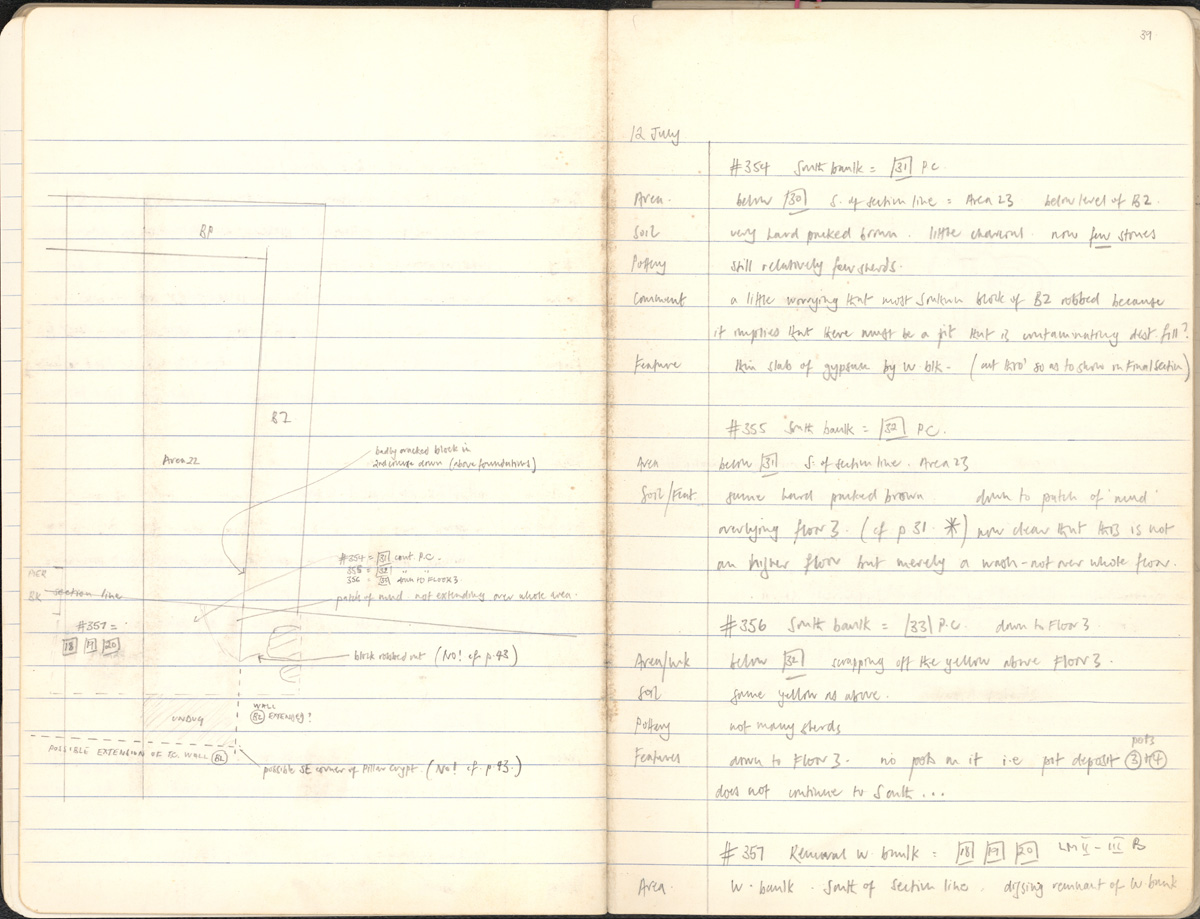 BP
BZ
Area 22
badly cracked block in
2nd course down (above foundations)
#354 = 31 cont. P.C.
355 = 32 " "
356 = 33 down to FLOOR 3
patch of mud. not extending over whole area.
PIER
BK
section line
#357 =
18 19 20
block robbed out (No! cf p. 43)
WALL
BZ EXTENDING?
UNDUG
POSSIBLE EXTENSION OF P.C. WALL BL
possible SE corner of Pillar Crypt. (No! cf p. 43.)
39
12 July
#354 South baulk = 31 P.C.
Area. below 30 S. of section line = Area 23 below level of BZ.
Soil very hard packed brown. little charcoal. now few stones
Pottery still relatively few sherds.
Comment a little worrying that most southern block of BZ robbed because
it implies that there must be a pit that is contaminating dest fill?
Feature thin slab of gypsum by W blk. (cut thro' so as to show in Final Section)
#355 South baulk = 32 P.C.
Area below 31 S. of section line. Area 23
Soil/Feat same hard packed brown. down to patch of 'mud'
overlying floor 3. (cf p 31. *) now clear that this is not
an higher floor but merely a wash - not over whole floor.
#356 South baulk = 33 P.C. down to Floor 3
Area/wk below 32 scrapping off the yellow above Floor 3.
Soil same yellow as above.
Pottery not many sherds
pots
Features down to Floor 3. no pots on it i.e pot deposit 3 + 4
does not continue to South...
#357 Removal W. baulk = 18 19 20 LM II - III B
Area. W. baulk. South of section line. digging remnant of W baulk